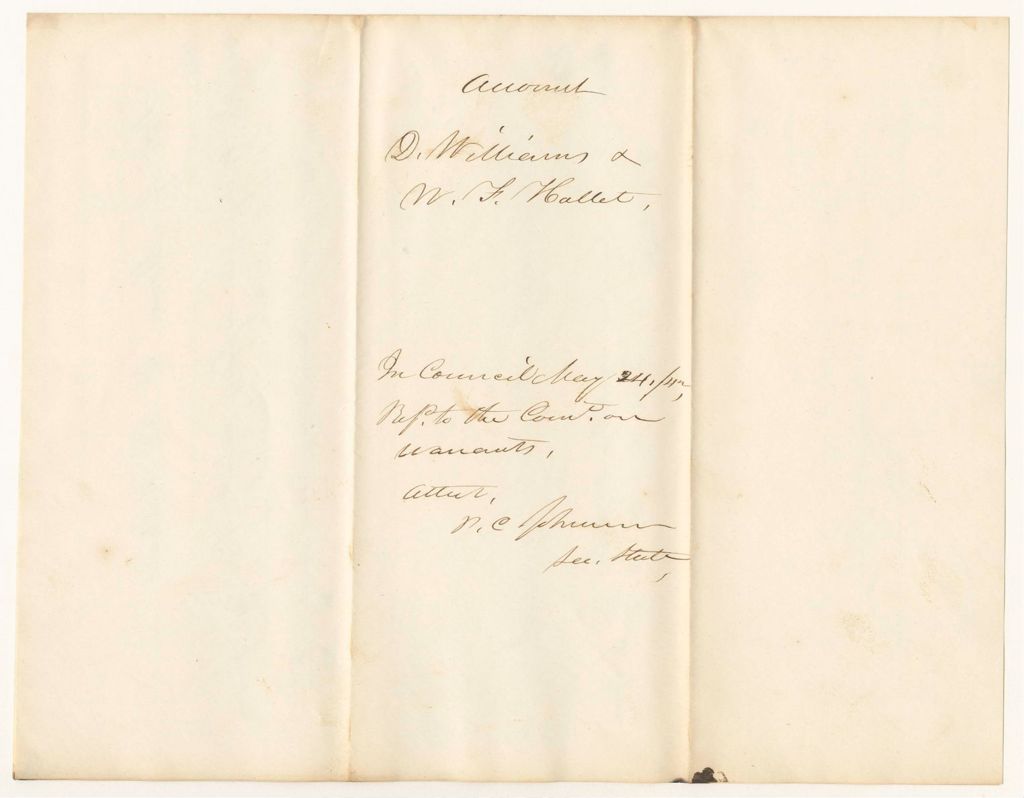 Account
D. Williams &
W. F. Hallet,
In Council May 24,
Refd. to the Comee. on
Warrants,
Attest,
P. C. Johnson
Sec. State,